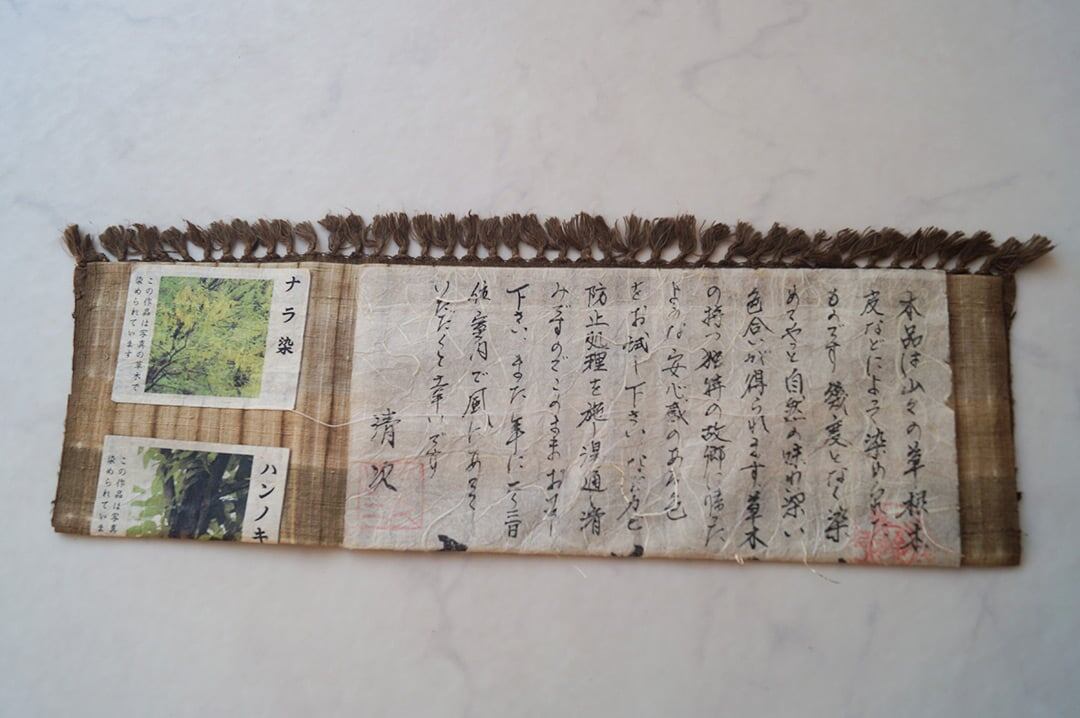 本品は山々の草根木
皮などによって染められた
ものです 幾度となく染
めてやっと自然の味わ深い
色合いが得られます 草木
の持つ独特の故郷に帰った
ような安心感のある色
をお試し下さい なお色
防止処理を施し湯通し済
みですのでこのままお召
下さい また年に一、二日
位室内で風にあてて
いただくと幸いです
清次
ナラ染
この作品は写真の草木で
染められています
ハンノキ
この作品は写真
染められていま